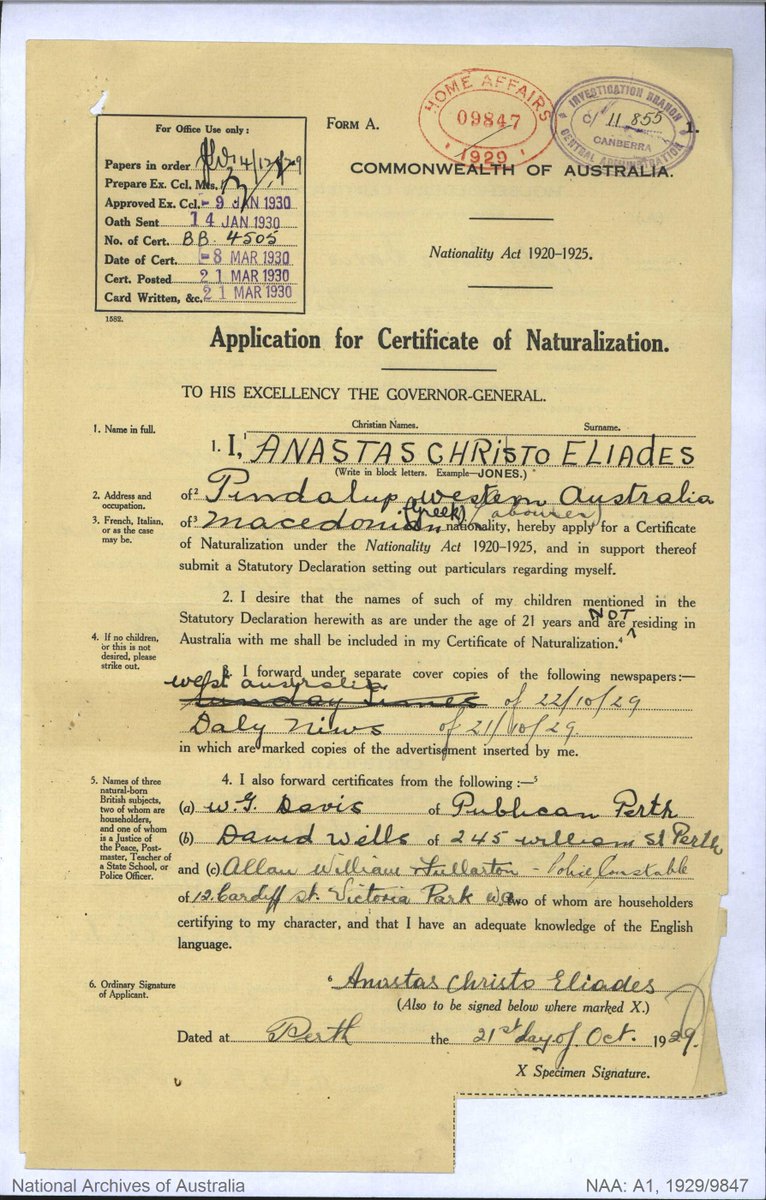 For Office Use only :
Papers in order 14/12/29
Prepare Ex. Ccl. Mts.
Approved Ex. Ccl. - 9 JAN 1930
Oath Sent 14 JAN 1930
No. of Cert. BB. 4505
Date of Cert. - 8 MAR 1930
Cert. Posted 21 MAR 1930
Card Written, &c. 21 MAR 1930
1582.
FORM A.
HOME AFFAIRS
09847
1929
INVESTIGATION BRANCH
C/ 11855
CANBERRA
CENTRAL ADMINISTRATION
1.
COMMONWEALTH OF AUSTRALIA.
Nationality Act 1920–1925.
Application for Certificate of Naturalization.
TO HIS EXCELLENCY THE GOVERNOR-GENERAL.
1. Name in full.
Christian Names. Surname.
1. I,¹ ANASTAS CHRISTO ELIADES
(Write in block letters. Example—JONES.)
2. Address and
occupation.
of² Pindalup western Australia
(Greek) (labourer)
3. French, Italian,
or as the case
may be.
of³ Macedonian nationality, hereby apply for a Certificate
of Naturalization under the Nationality Act 1920–1925, and in support thereof
submit a Statutory Declaration setting out particulars regarding myself.
2. I desire that the names of such of my children mentioned in the
Statutory Declaration herewith as are under the age of 21 years and are NOT residing in
Australia with me shall be included in my Certificate of Naturalization.⁴
4. If no children,
or this is not
desired, please
strike out.
3. I forward under separate cover copies of the following newspapers:—
west australia
Sunday Times of 22/10/29
Daly News of 21/10/29.
in which are marked copies of the advertisement inserted by me.
5. Names of three
natural-born
British subjects,
two of whom are
householders,
and one of whom
is a Justice of
the Peace, Post-
master, Teacher of
a State School, or
Police Officer.
4. I also forward certificates from the following :—⁵
(a) W. G. Davis of Publican Perth
(b) David Wells of 245 william St Perth
and (c) Allan William Fullarton - Police Constable
of 12 Cardiff St. Victoria Park W.A. two of whom are householders
certifying to my character, and that I have an adequate knowledge of the English
language.
6. Ordinary Signature
of Applicant.
⁶ Anastas Christo Eliades
(Also to be signed below where marked X.)
Dated at Perth the 21st day of Oct. 1929.
X Specimen Signature.
National Archives of Australia
NAA: A1, 1929/9847